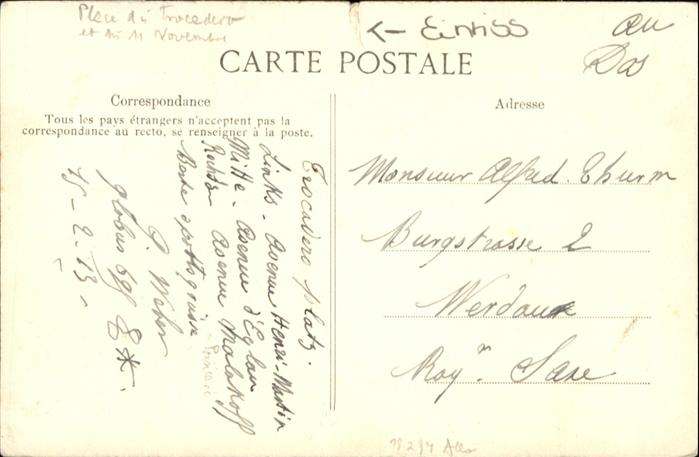 Place du Trocadero
et du 11 Novembre
← Einriss
au
Dos
CARTE POSTALE
Correspondance
Tous les pays étrangers n'acceptent pas la
correspondance au recto, se renseigner à la poste.
Trocadero platz.
Links - Avenue Henri-Martin
Mitte - Avenue d'Eylau
Rechts Avenue Malakoff
Beste sportsgrüsse
G. Weber
globus 698
15-2-13-
Adresse
Monsieur Alfred Thurm
Burgstrasse 2
Werdau
Roy.m Saxe